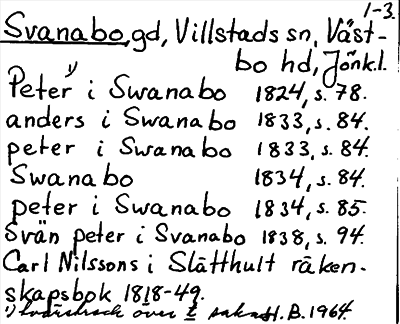 1-3.
Svanabo, gd, Villstads sn, Väst-
bo hd, Jönk.l.
Peter 1) i Swanabo 1824, s. 78.
anders i Swanabo 1833, s. 84.
peter i Swanabo 1833, s. 84.
Swanabo 1834, s. 84.
peter i Swanabo 1834, s. 85.
Svän peter i Svanabo 1838, s. 94.
Carl Nilssons i Slätthult räken-
skapsbok 1818-49.
1) över t saknas H.B. 1964.